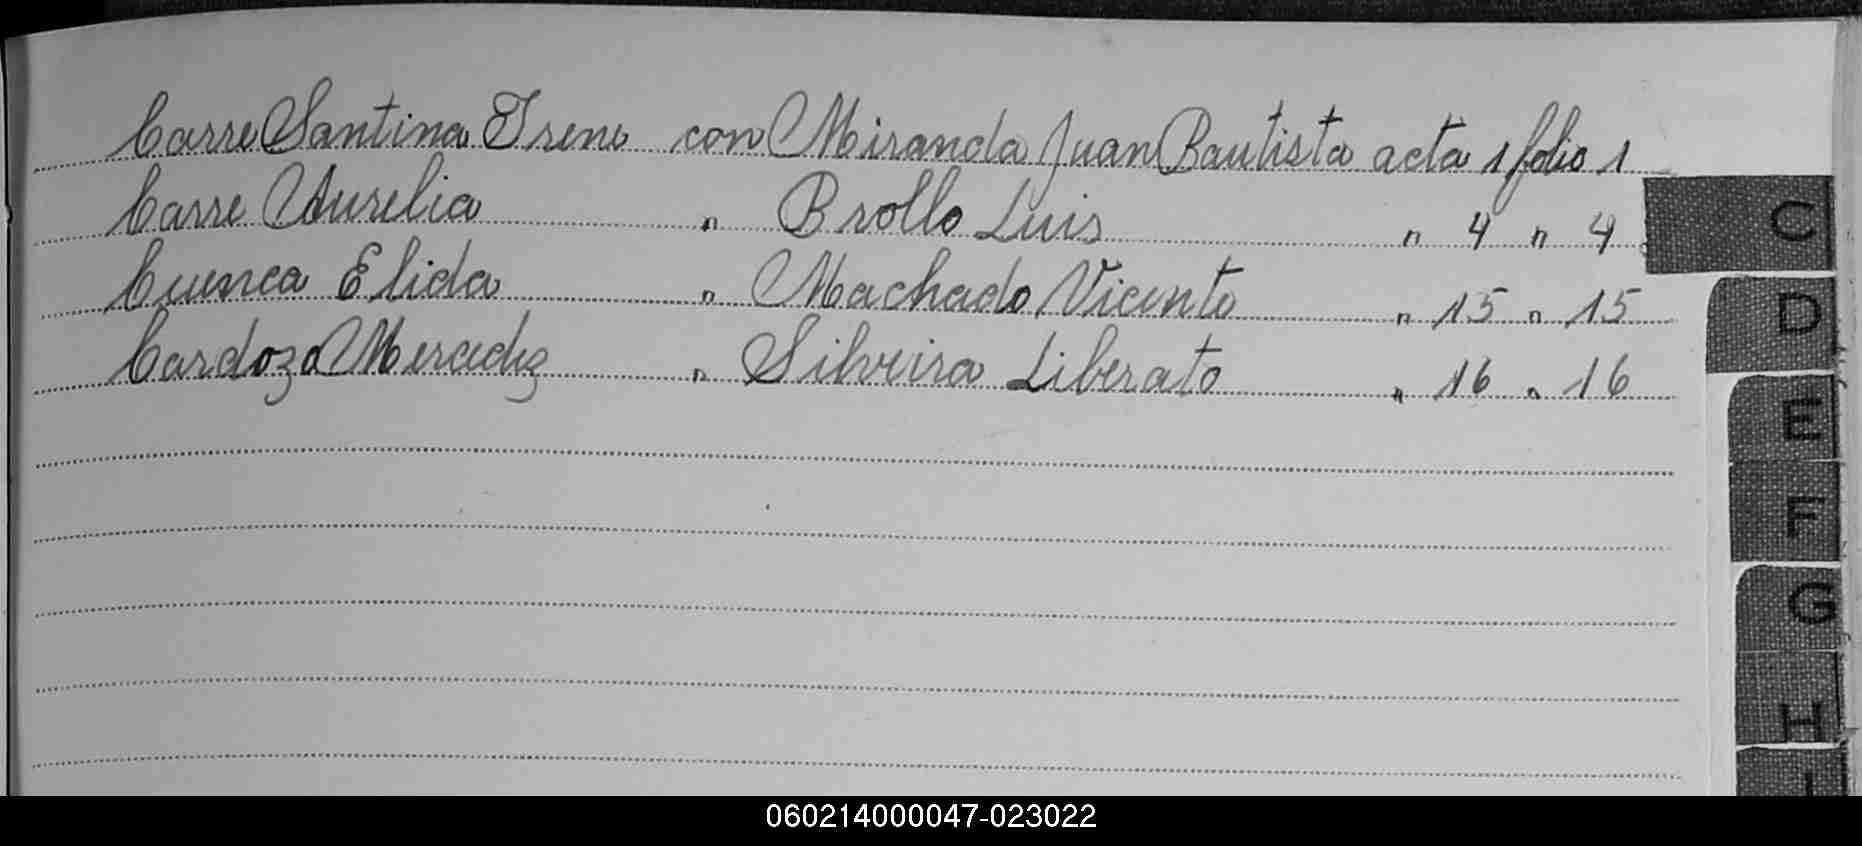 Carre Santina Irene con Miranda Juan Bautista acta 1 folio 1
Carre Aurelia " Brollo Luis " 4 " 4
C
Cuenca Elida " Machado Vicente " 15 " 15
D
Cardozo Mercedez " Silveira Liberato " 16 " 16
E
F
G
H
I
060214000047-023022